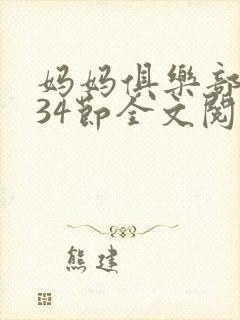 妈妈俱樂部
34節全文閱
熊建